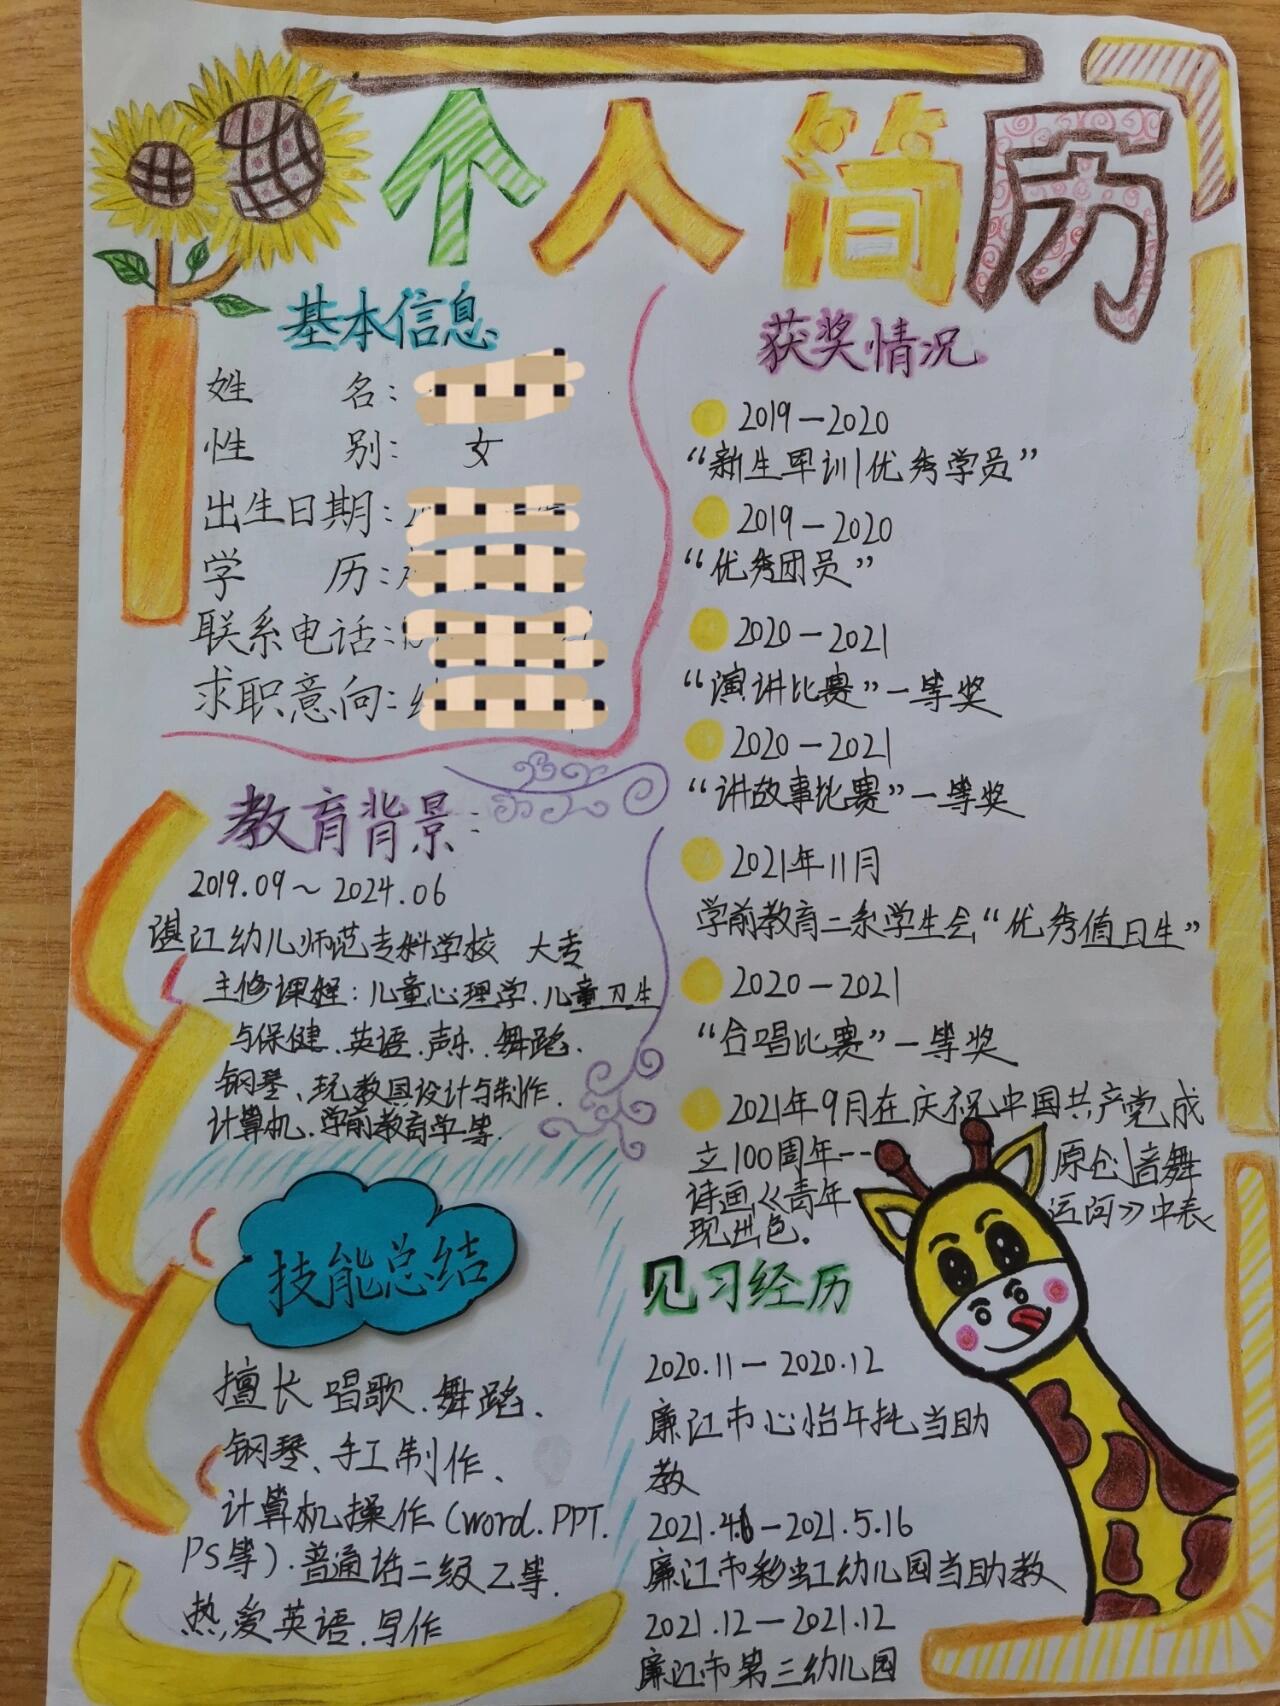 个人简历
基本信息
姓 名:
性 别: 女
出生日期:
学 历:
联系电话:
求职意向:
教育背景:
2019.09~2024.06
湛江幼儿师范专科学校 大专
主修课程:儿童心理学、儿童卫生
与保健、英语、声乐、舞蹈、
钢琴、玩教具设计与制作、
计算机、学前教育学等.
技能总结
擅长唱歌、舞蹈、
钢琴、手工制作、
计算机操作(word.PPT.
PS等)、普通话二级乙等.
热爱英语、写作
获奖情况
2019—2020
“新生军训优秀学员”
2019—2020
“优秀团员”
2020—2021
“演讲比赛”一等奖
2020—2021
“讲故事比赛”一等奖
2021年11月
学前教育二系学生会“优秀值日生”
2020—2021
“合唱比赛”一等奖
2021年9月在庆祝中国共产党成
立100周年-- 原创音舞
诗画《青年 运河》中表
现出色.
见习经历
2020.11—2020.12
廉江市心怡午托当助
教
2021.4.6—2021.5.16
廉江市彩虹幼儿园当助教
2021.12—2021.12
廉江市第三幼儿园